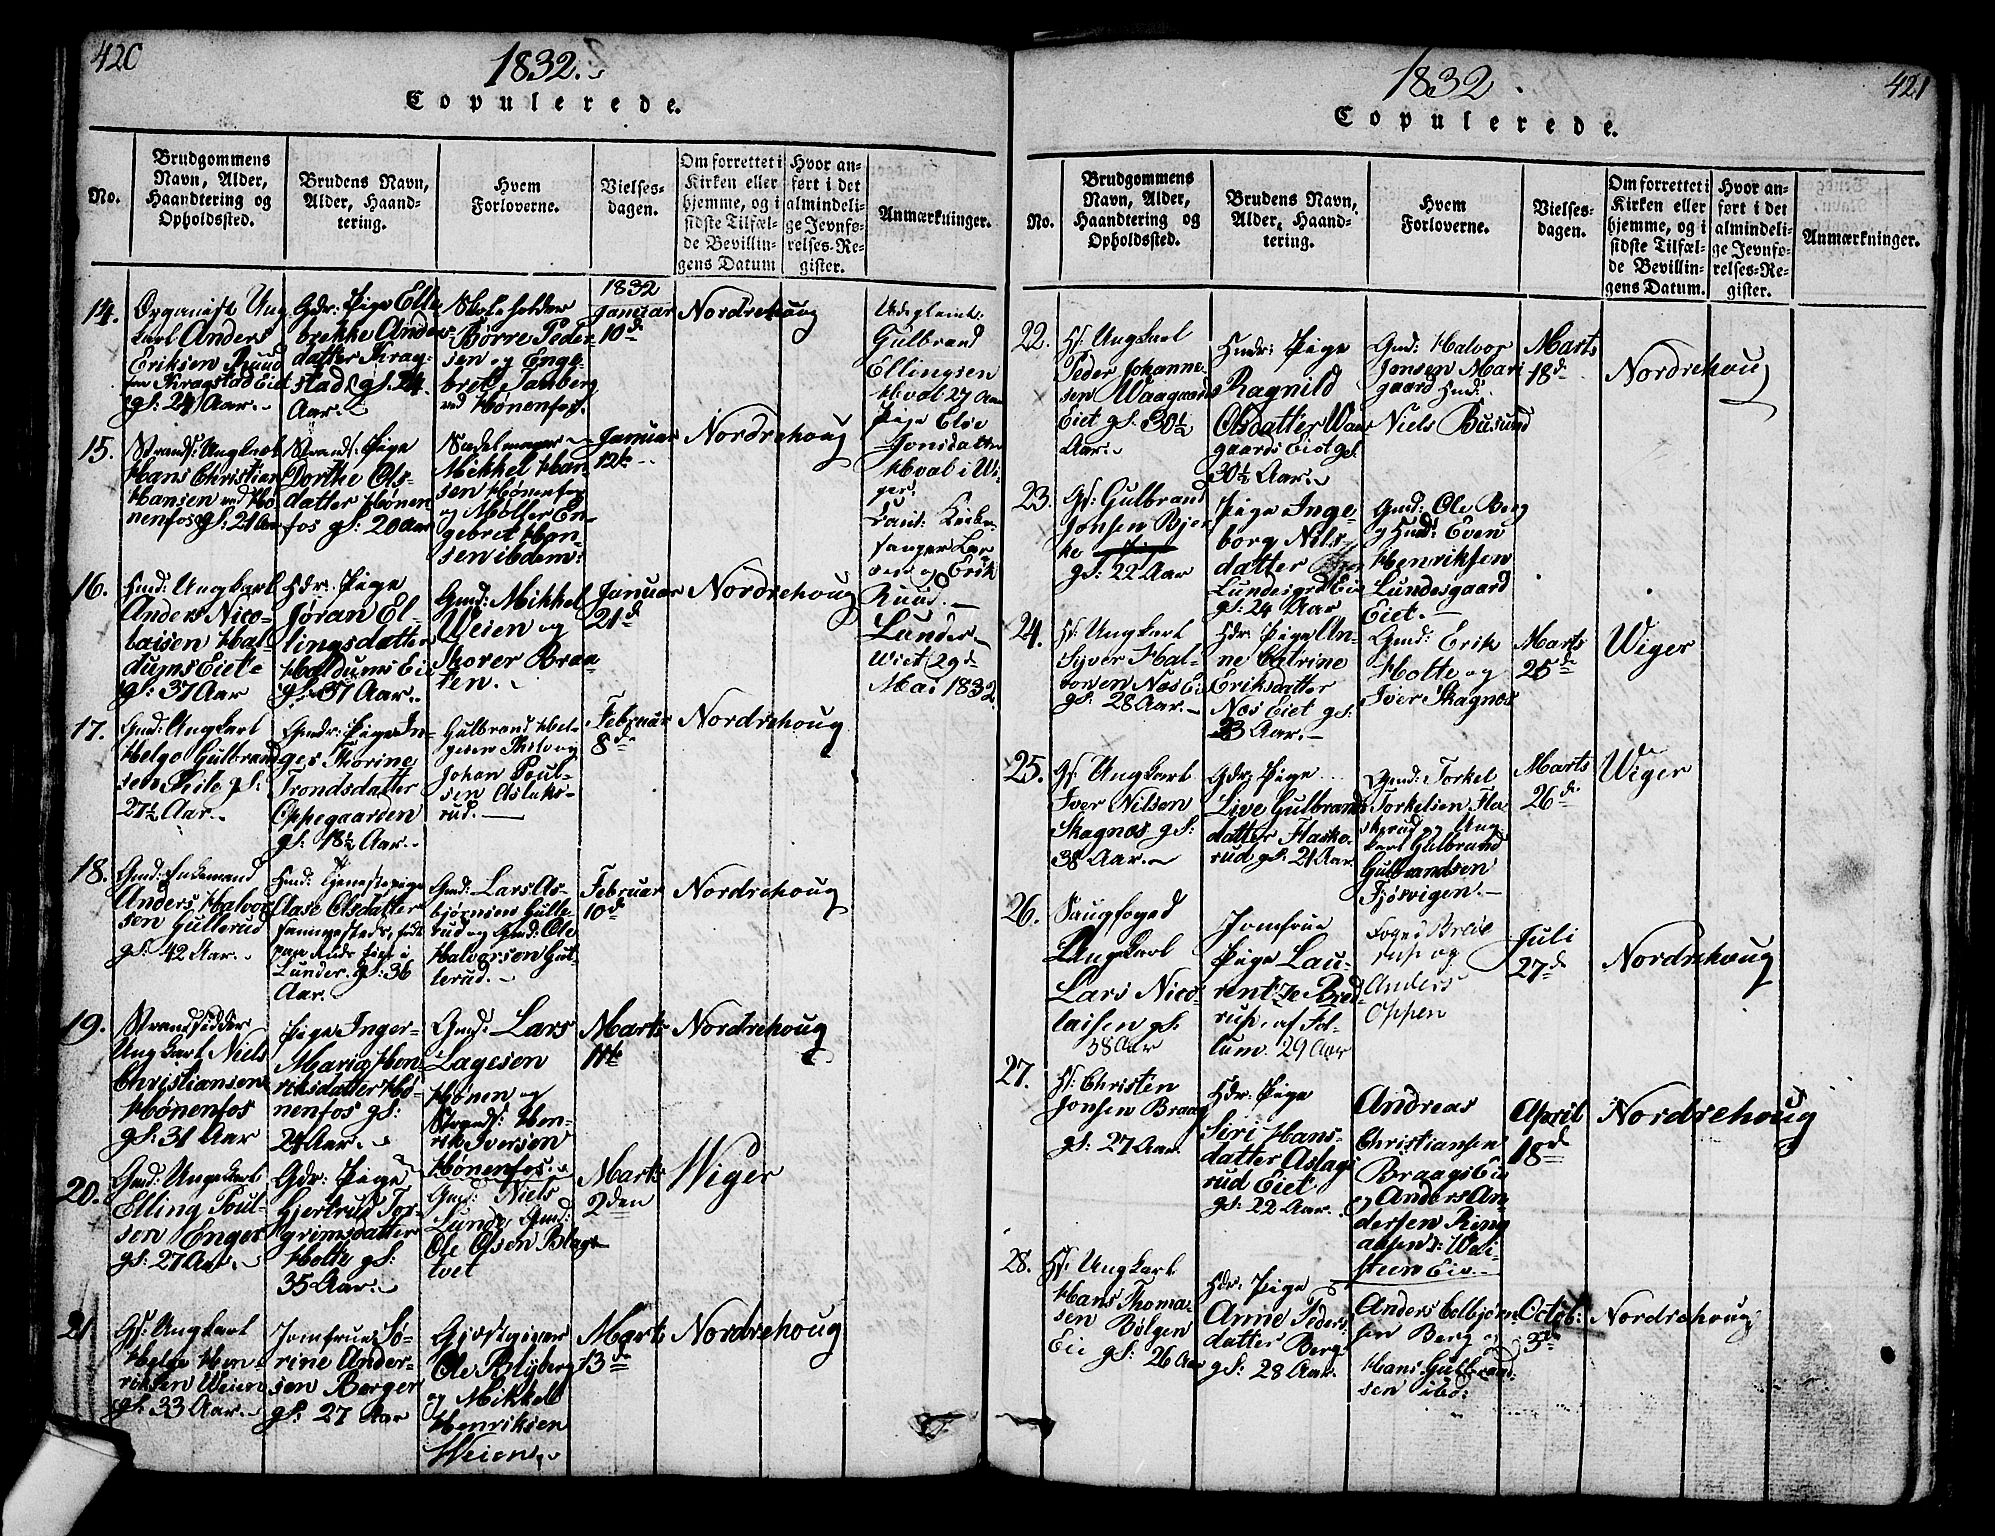 420
1832.
Copulerede.
No.
Brudgommens
Navn, Alder,
Haandtering og
Opholdssted.
Brudens Navn,
Alder, Haand-
tering.
Hvem
Forloverne.
Vielses-
dagen.
Om forrettet i
Kirken eller
hjemme, og i
sidste Tilfæl-
de Bevillin-
gens Datum
Hvor an-
ført i det
almindeli-
ge Jevnfø-
relses-Re-
gister.
Anmærkninger.
14.
Organist Ung
karl Anders
Eriksen Ruud
Kragstad Eiet
gl: 24 Aar.
Gdr: Pige Else
brekke Anders
datter Krag-
stad gl. 24
Aar.
Skoleholder
Børre Peder-
sen og Enge-
bret Sanberg
ved Hønenfos.
1832
Januar
10de
Nordrehoug
Gulbrand
Ellingsen
Hval 27 Aar
Pige Else
Jonsdatter
Hval i Wi-
ger.
Kirke-
sanger Lar
og Erik
Ruud.
Lunder
Viet 29de
Mai 1832
15.
Strands: Ungkarl
Hans Christian
Hansen ved Hø-
nenfos gl: 21 Aar
Strands: Pige
Dorthe Ols-
datter Hønen-
fos gl: 20 Aar
Sadelmager
Mikkel Han-
sen Hønenfos
og Møller En-
gebret Han-
sen ibdem:
Januar
12te
Nordrehoug
16.
Hmd: Ungkarl
Anders Nico-
laisen Hal-
dums Eiet
gl: 37 Aar
Hdr: Pige
Jøran El-
lingsdatter
Haldums Eie
gl: 37 Aar.
Gmd: Mikkel
Weien og
Thorer Braa-
ten.
Januar
21de
Nordrehoug
17.
Gmd: Ungkarl
Helge Gulbrand
sen Hiile gl:
27½ Aar.
Gmdr: Pige In-
ger Thorine
Trondsdatter
Oppegaarden
gl: 18½ Aar.
Gulbrand Hel-
gesen og
Johan Poul-
sen Aslaks-
rud.
Februar
8de
Nordrehoug
18.
Gmd: Enkemand
Anders Halvor
sen Gullerud
gl: 42 Aar.
Hmd: Tjenestepige
Aase Olsdatter
Lunder. gl: 36
Aar.
Gmd: Lars As-
bjørnsen Gulle-
rud og Gmd: Ole
Halvorsen Gul-
lerud.
Februar
10de
Nordrehoug
19.
Strandsidder
Ungkarl Niels
Christiansen
Hønenfos
gl: 31 Aar
Pige Inger
Maria Hen-
riksdatter Hø-
nenfos gl:
24 Aar.
Gmd: Lars
Lagesen
Hønen og
Strands: Hen-
rik Iversen
Hønenfos.
Marts
11te
Nordrehoug
20.
Gmd: Ungekarl
Elling Poul-
sen Enger
gl: 27 Aar.
Gdr: Pige
Gjertrud Tor-
grimsdatter
Holte gl:
35 Aar.
Gmd: Niels
Lunde Gmd:
Ole Olsen Blags-
tvet
Marts
2den
Wiger
21
Gs: Ungkarl
Helge Hen-
riksen Weien
gl: 33 Aar.
Jomfrue Sø-
rine Ander-
sen Berger
gl: 27 Aar
Gjæstgiver
Ole Blyberg
og Mikkel
Henriksen
Weien.
Marts
13de
Nordrehoug
1832.
421
Copulerede.
No.
Brudgommens
Navn, Alder,
Haandtering og
Opholdssted.
Brudens Navn,
Alder, Haand-
tering.
Hvem
Forloverne.
Vielses-
dagen.
Om forrettet i
Kirken eller
hjemme, og i
sidste Tilfæl-
de Bevillin-
gens Datum.
Hvor an-
ført i det
almindeli-
ge Jevnfø-
relses-Re-
gister.
Anmærkninger.
22.
Hs: Ungkarl
Peder Johanne-
sen Waagaards
Eiet gl: 30½
Aar.
Hmdr: Pige
Ragnild
Olsdatter Waa-
gaards Eiet gl.
30½ Aar.
Gmd: Halvor
Jonsen Mari
gaard Hmd:
Niels Busund
Marts
18de
Nordrehoug
23.
Gs: Gulbrand
Jonsen Bjer
ke
gl: 22 Aar
Pige Inge-
borg Nils-
datter
Lundesgrd Eie
gl: 24 Aar
Gmd: Ole Berg
og Hmd: Even
Henriksen
Lundesgaard
Eiet.
24.
Hs: Ungkarl
Syver Hal-
vorsen Næs Ei
gl: 28 Aar.
Hdr: Pige An-
ne Catrine
Eriksdatter
Næs Eiet gl:
23 Aar.
Gmd: Erik
Holte og
Iver Skagnæs
Marts
25de
Wiger
25.
Gs: Ungkarl
Iver Nilsen
Skagnæs gl:
38 Aar.
Gdr: Pige
Live Gulbrands
datter Flaske-
rud gl: 21 Aar
Gmd: Torkel
Torkelsen Fla
skerud og Ung-
karl Gulbrand
Gulbrandsen
Fjøsvigen.
Marts
26de
Wiger
26.
Ungkarl
Lars Nico-
laisen gl:
38 Aar
Jomfrue
Pige Lau-
rentze Bred-
rup, af Fol-
lum. 29 Aar
Foged Bred
rup og
Anders
Oppen
Juli
27de
Nordrehoug
27.
Hs: Christen
Jonsen Braag
gl: 27 Aar.
Hdr: Pige
Siri Hans-
datter Aslags
rud Eiet
gl: 22 Aar.
Andreas
Christiansen
Braags Eie
og Anders An-
dersen Ring
Eie.
April
18de
Nordrehoug
28.
Hs: Ungkarl
Hans Thoma-
sen Bølgen
Eie gl: 26 Aar
Hdr: Pige
Anne Peders
datter Bergs
gl: 28 Aar.
Anders Colbjørn-
sen Berg og
Hans Gulbrand-
sen ibid:
Octob:
3de
Nordrehoug